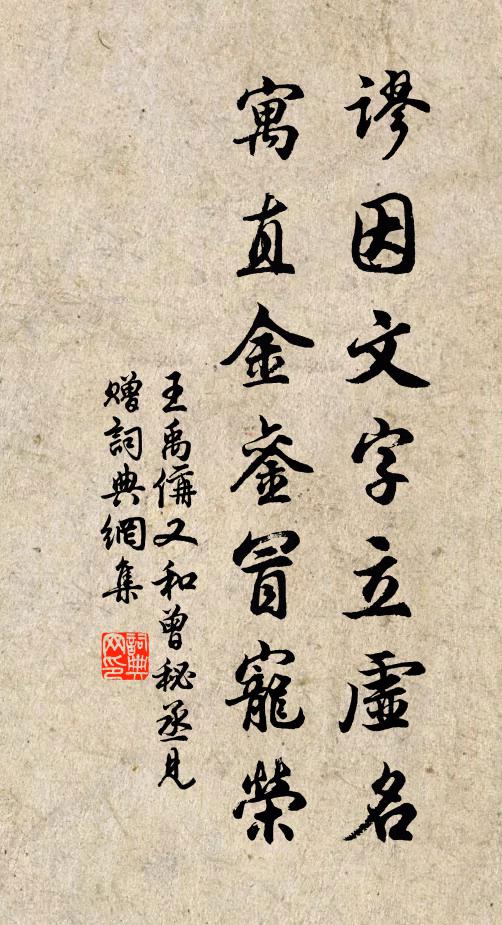 謬因文字立虛名
寓直金銮冒寵榮
王禹偁又和曾秘丞見
贈詞典網集
詞典
网印